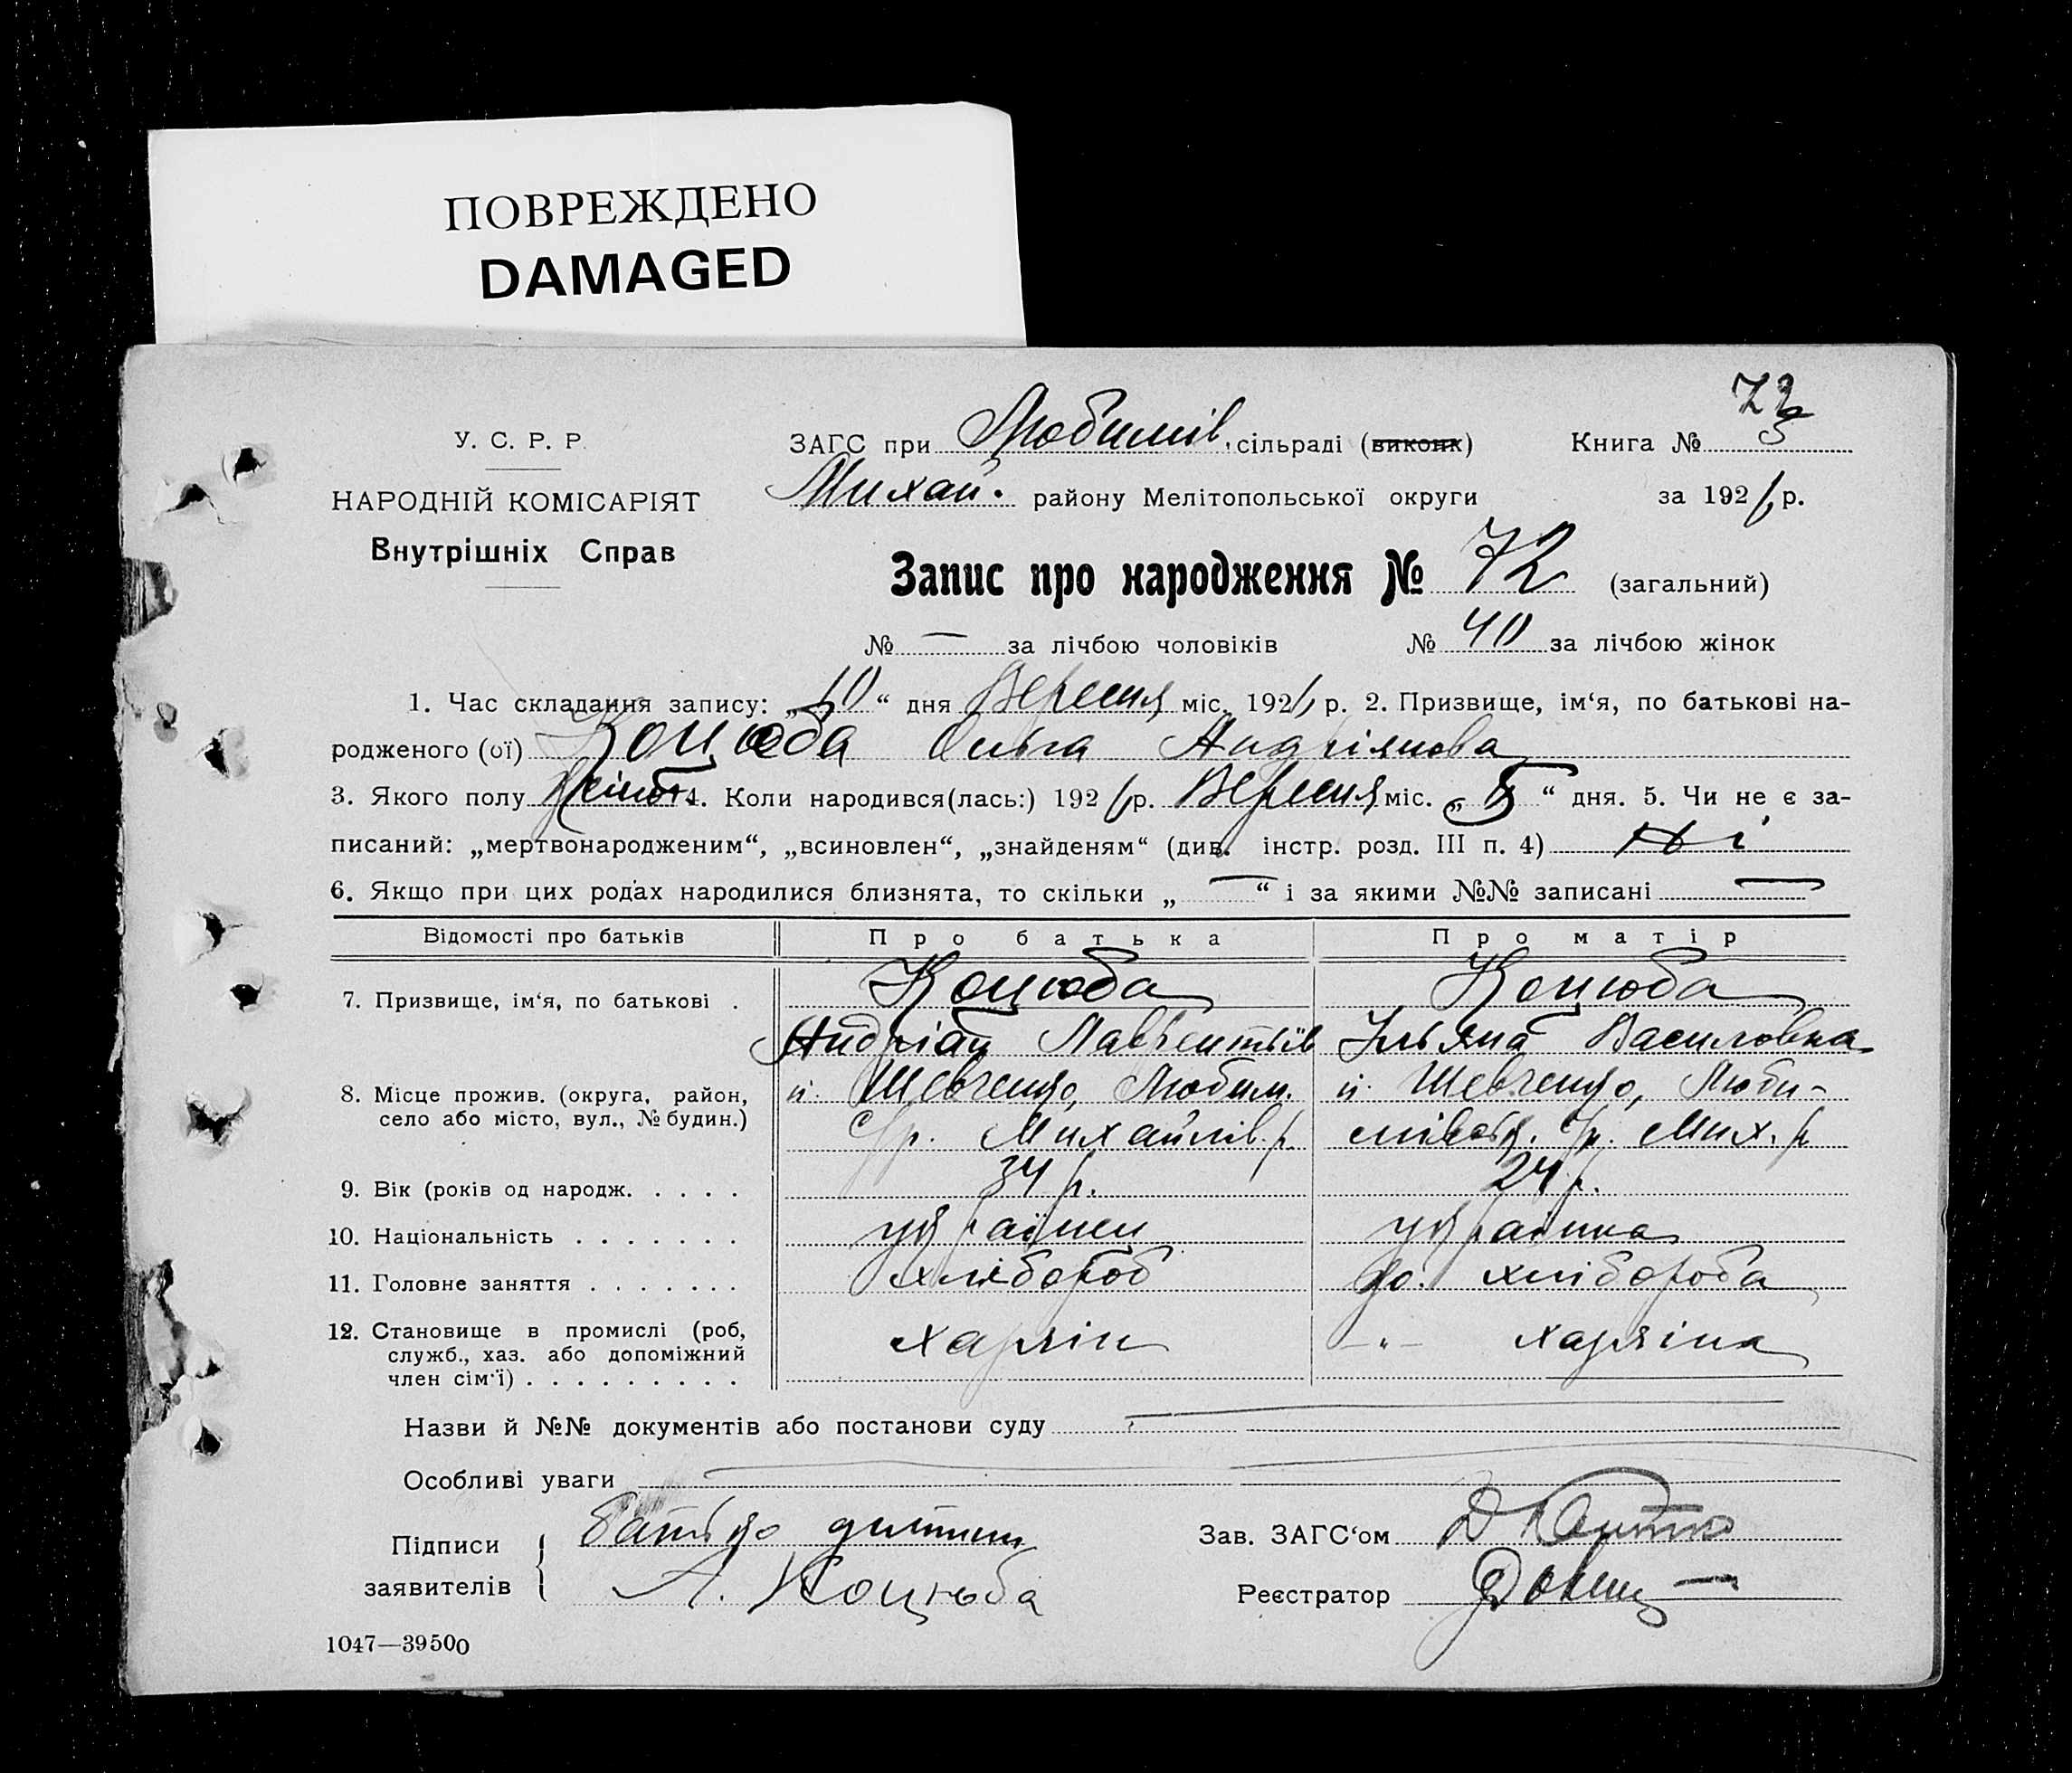 ПОВРЕЖДЕНО
DAMAGED
72
У. С. Р. Р.
НАРОДНІЙ КОМІСАРІЯТ
Внутрішніх Справ
ЗАГС при Любимів. сільраді (виконк) Книга № 3
Михай. району Мелітопольської округи за 192 р.
Запис про народження № 72 (загальний)
№ — за лічбою чоловіків № 40 за лічбою жінок
1. Час складання запису: „10“ дня Вересня міс. 192 р. 2. Призвище, ім‘я, по батькові на-
родженого (ої) Коцюба Ольга Андріянова
3. Якого полу жіноч. 4. Коли народився(лась:) 192 р. Вересня міс. „5“ дня. 5. Чи не є за-
писаний: „мертвонародженим“, „всиновлен“, „знайденям“ (див. інстр. розд. III п. 4) Ні
6. Якщо при цих родах народилися близнята, то скільки „—“ і за якими №№ записані —
Відомості про батьків Про батька Про матір
7. Призвище, ім‘я, по батькові . Коцюба Коцюба
Андріян Лаврентіїв Ульяна Василовна
8. Місце прожив. (округа, район, п. Шевченко, Любим. п. Шевченко, Люби-
село або місто, вул., № будин.) с/р. Михайлів. р. мівськ. с/р. Мих. р.
9. Вік (років од народж. . . . . 34 р. 24 р.
10. Національність . . . . . . . українец українка
11. Головне заняття . . . . . . . хлібороб до. хлібороба
12. Становище в промислі (роб, хазяін -"- хазяіна
служб., хаз. або допоміжний
член сім‘ї) . . . . . . . . .
Назви й №№ документів або постанови суду —
Особливі уваги —
Підписи
заявителів
батько дитини
А. Коцюба
Зав. ЗАГС‘ом
Реєстратор
1047—39500